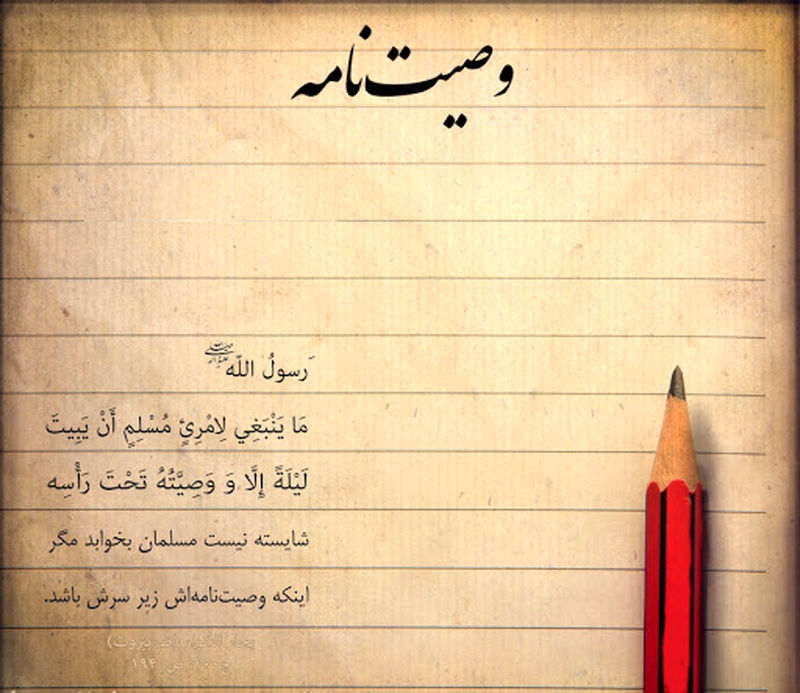 وصیت‌نامه
رسولُ اللّه ﷺ
مَا يَنْبَغِي لِامْرِئٍ مُسْلِمٍ أَنْ يَبِيتَ
لَيْلَةً إِلَّا وَ وَصِيَّتُهُ تَحْتَ رَأْسِه
شایسته نیست مسلمان بخوابد مگر
اینکه وصیت‌نامه‌اش زیر سرش باشد.
بحار الأنوار (ط-بیروت)
ص ۱۹۴